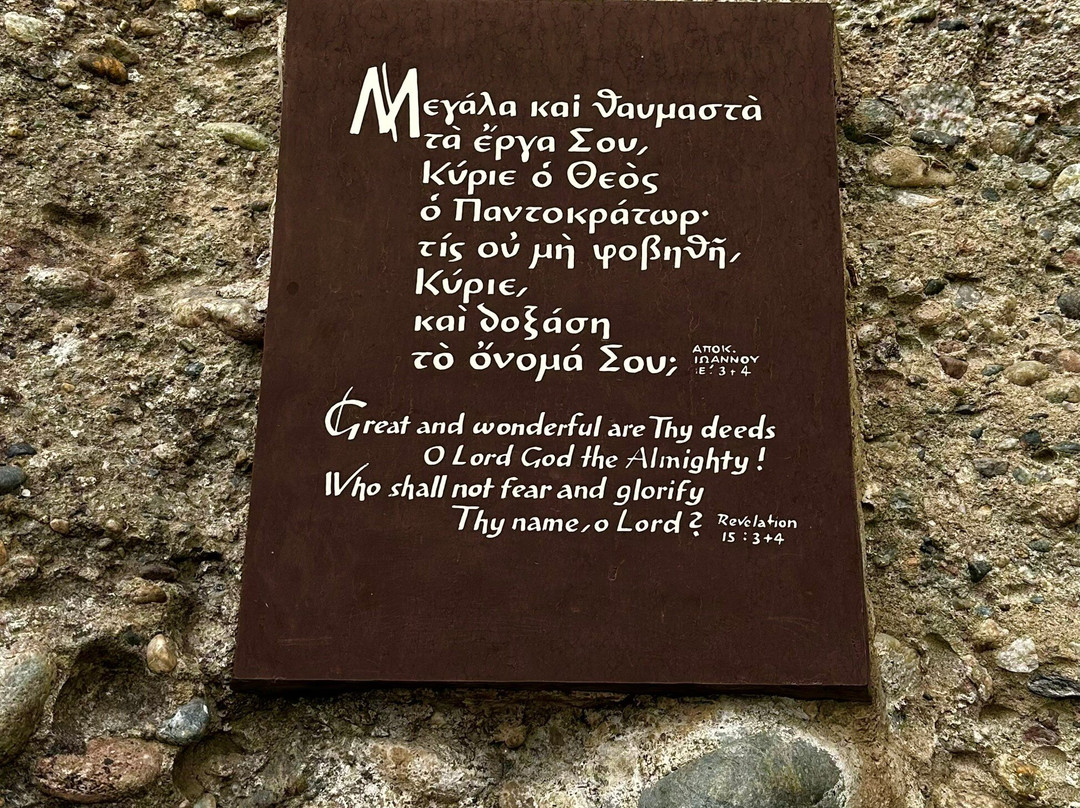 Μεγάλα καί θαυμαστὰ
τὰ ἔργα Σου,
Κύριε ὁ Θεὸς
ὁ Παντοκράτωρ·
τίς οὐ μὴ φοβηθῆ,
Κύριε,
καὶ δοξάση
τὸ ὄνομά Σου;
ΑΠΟΚ.
ΙΩΑΝΝΟΥ
ΙΕ΄: 3+4
Great and wonderful are Thy deeds
O Lord God the Almighty!
Who shall not fear and glorify
Thy name, o Lord?
Revelation
15:3+4